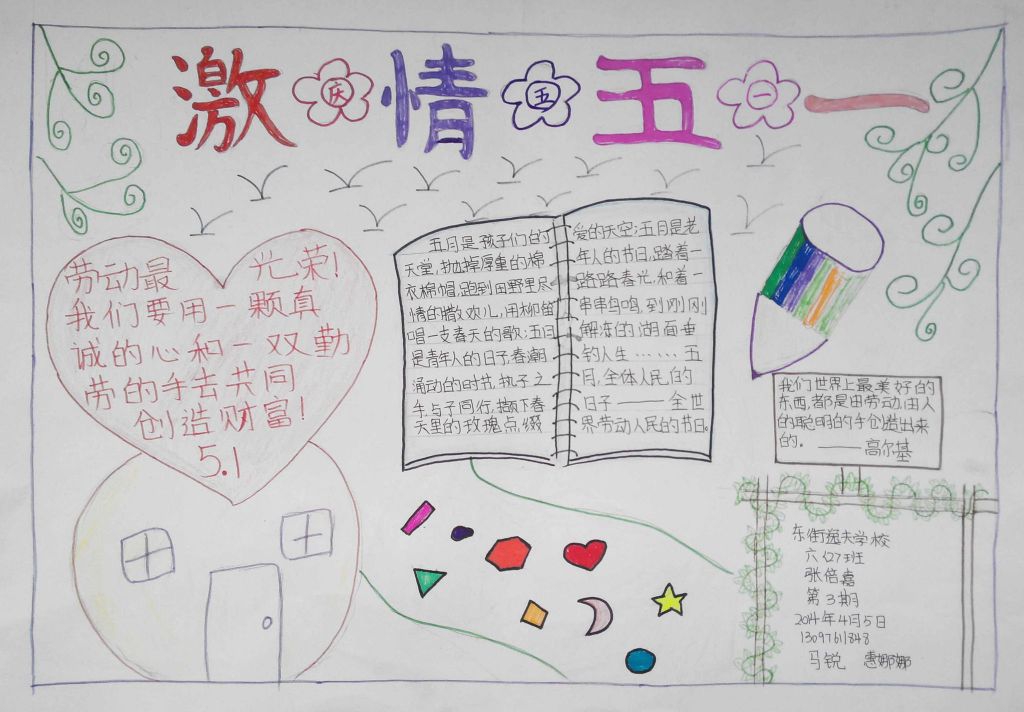 激情五一
庆五一
劳动最光荣!
我们要用一颗真
诚的心和一双勤
劳的手去共同
创造财富!
5.1
五月是孩子们的
天堂,抛掉厚重的棉
衣棉帽,跑到田野里尽
情的撒欢儿,用柳笛
唱一支春天的歌;五月
是青年人的日子春潮
涌动的时节,执子之
手,与子同行,撷下春
天里的玫瑰点缀
爱的天空;五月是老
年人的节日,踏着一
路路春光,和着一
串串鸟鸣,到刚刚
解冻的湖面垂
钓人生……五
月,全体人民的
日子——全世
界劳动人民的节日。
我们世界上最美好的
东西,都是由劳动,由人
的聪明的手创造出来
的。——高尔基
东街逸夫学校
六(2)班
张倍嘉
第3期
2014年4月5日
马锐 惠娜娜